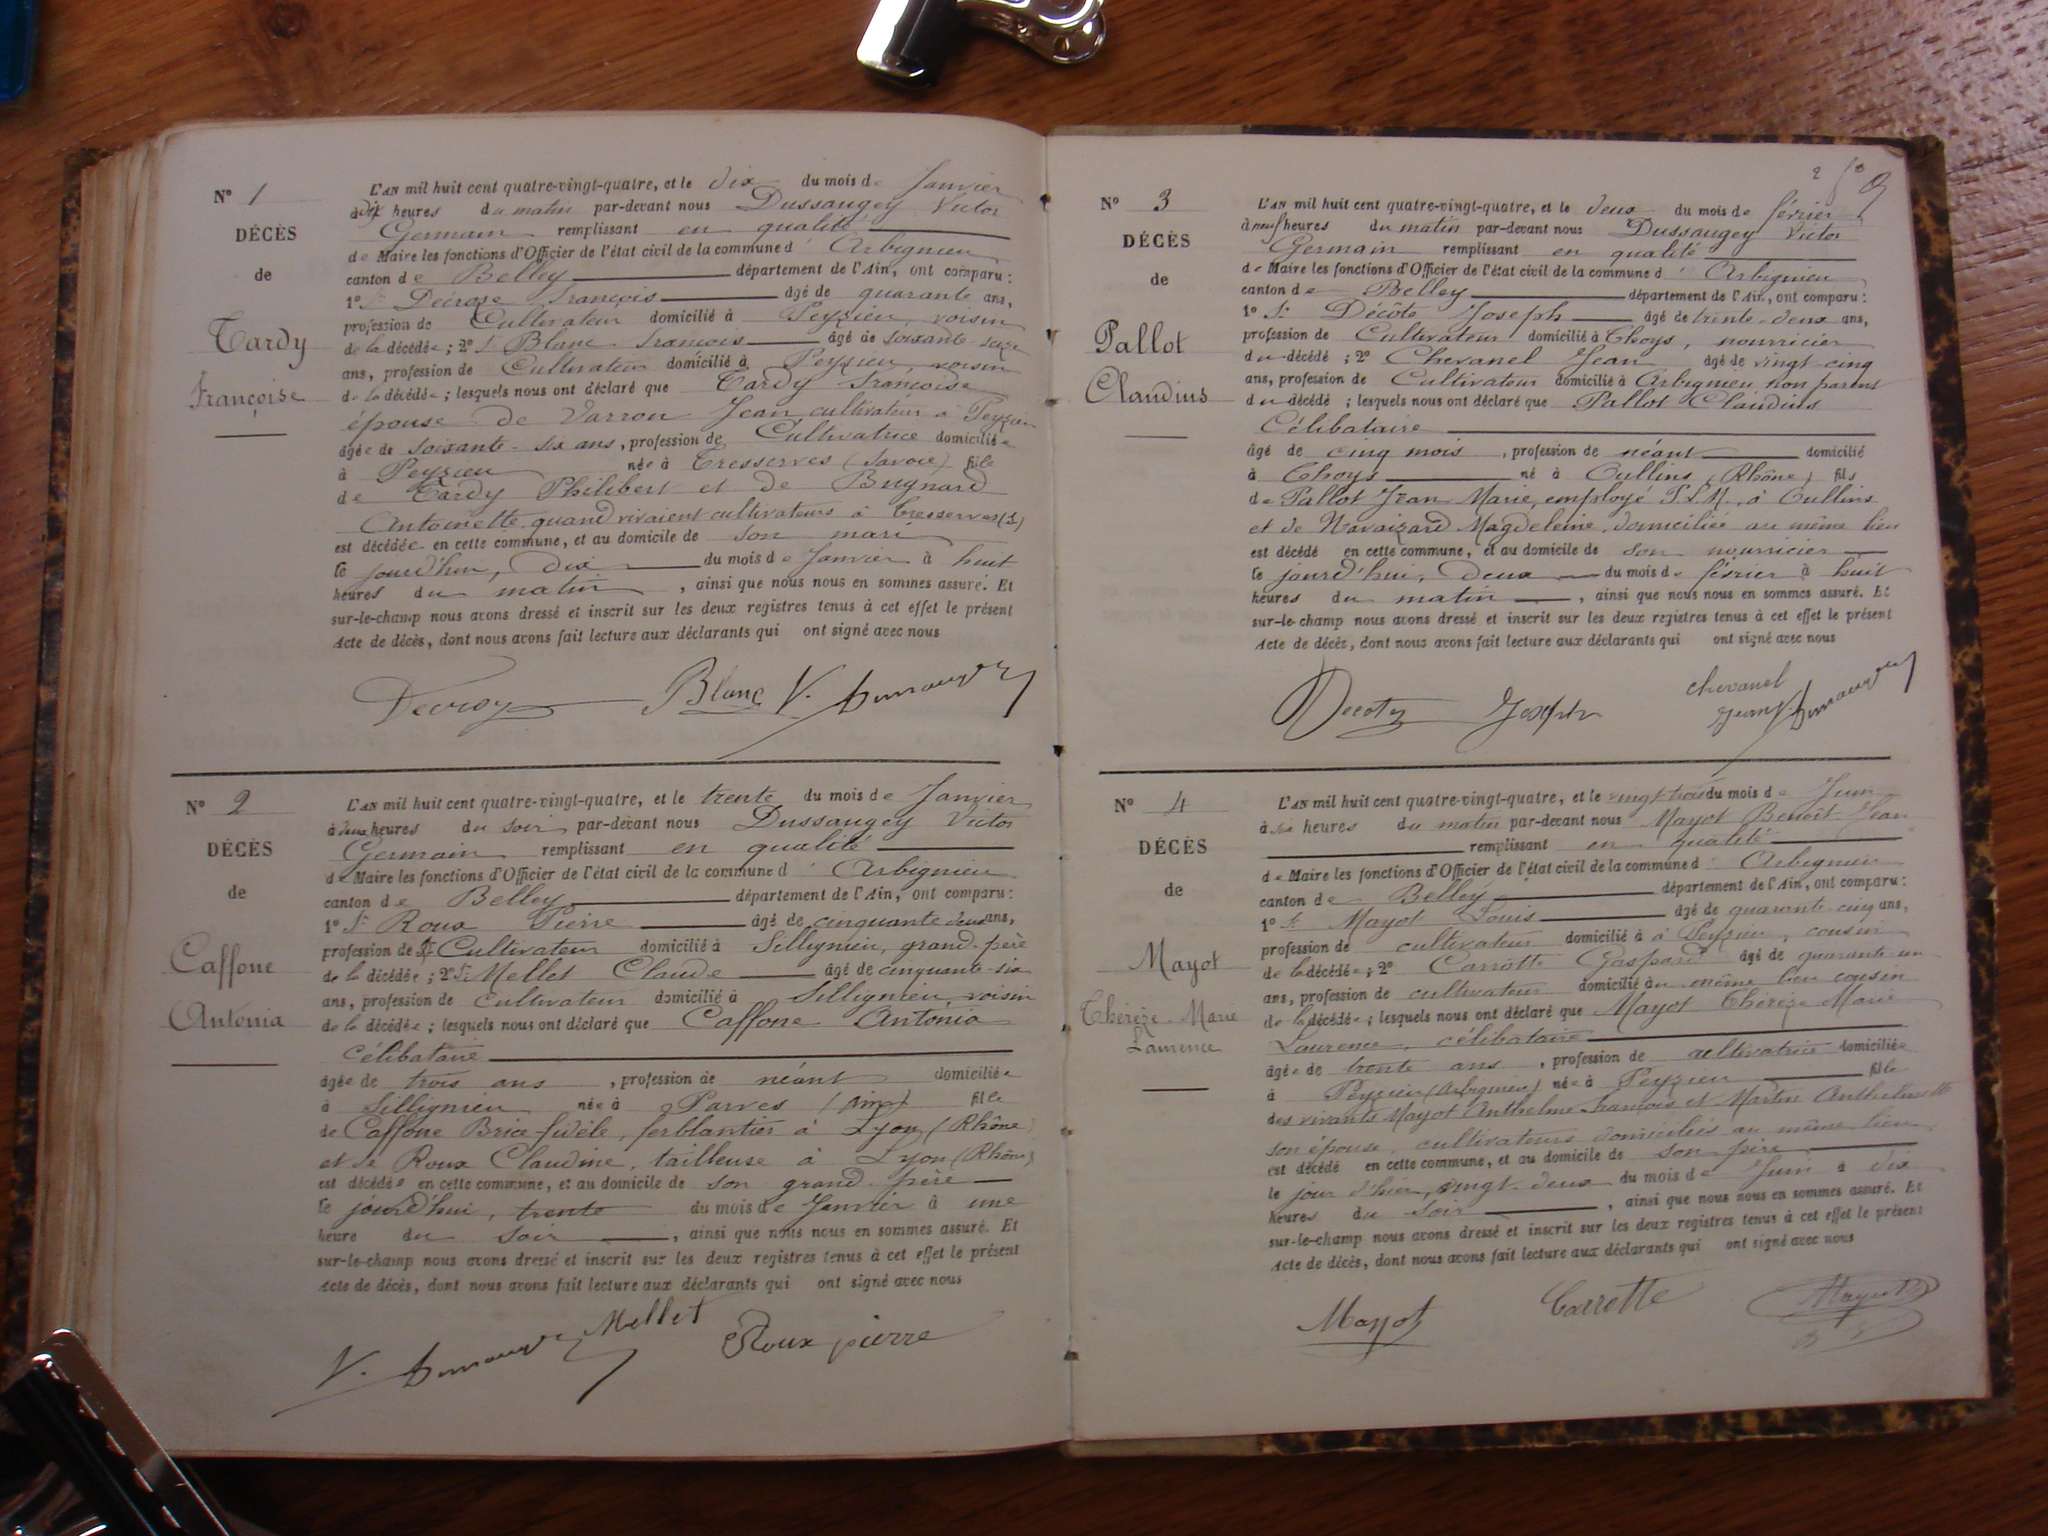 N° 1
DÉCÈS
de
Tardy
Françoise
L'AN mil huit cent quatre-vingt-quatre, et le dix du mois de Janvier
à dix heures du matin par-devant nous Dussaugey Victor
Germain remplissant en qualité
de Maire les fonctions d'Officier de l'état civil de la commune d' Arbignieu
canton de Belley département de l'Ain, ont comparu :
1° Sr François âgé de quarante ans,
profession de Cultivateur domicilié à Peyzieu, voisin
de la décédée ; 2° Sr Blanc François âgé de soixante-seize
ans, profession de Cultivateur domicilié à Peyzieu, voisin
de la décédée ; lesquels nous ont déclaré que Tardy Françoise
épouse de Varron Jean cultivateur à Peyzieu
âgée de soixante-six ans, profession de Cultivatrice domiciliée
à Peyzieu née à Tresserves (Savoie) fille
de Tardy Philibert et de Bugnard
Antoinette quand vivaient cultivateurs à Tresserves (S)
est décédée en cette commune, et au domicile de son mari
le jourd'hui, dix du mois de Janvier à huit
heures du matin, ainsi que nous nous en sommes assuré. Et
sur-le-champ nous avons dressé et inscrit sur les deux registres tenus à cet effet le présent
Acte de décès, dont nous avons fait lecture aux déclarants qui ont signé avec nous
Blanc V. Dussaugey
N° 2
DÉCÈS
de
Caffone
Antonia
L'AN mil huit cent quatre-vingt-quatre, et le trente du mois de Janvier
à deux heures du soir par-devant nous Dussaugey Victor
Germain remplissant en qualité
de Maire les fonctions d'Officier de l'état civil de la commune d' Arbignieu
canton de Belley département de l'Ain, ont comparu :
1° Sr Roux Pierre âgé de cinquante deux ans,
profession de Cultivateur domicilié à Sillignieu, grand-père
de la décédée ; 2° Sr Mellet Claude âgé de cinquante-six
ans, profession de cultivateur domicilié à Sillignieu, voisin
de la décédée ; lesquels nous ont déclaré que Caffone Antonia
Célibataire
âgée de trois ans, profession de néant domiciliée
à Sillignieu née à Parves (Ain) fille
de Caffone Brice-fidèle, ferblantier à Lyon (Rhône)
et de Roux Claudine, tailleuse à Lyon (Rhône)
est décédée en cette commune, et au domicile de son grand-père
le jourd'hui, trente du mois de Janvier à une
heure du soir, ainsi que nous nous en sommes assuré. Et
sur-le-champ nous avons dressé et inscrit sur les deux registres tenus à cet effet le présent
Acte de décès, dont nous avons fait lecture aux déclarants qui ont signé avec nous
V. Dussaugey Mellet Roux pierre
2
N° 3
DÉCÈS
de
Pallot
Claudius
L'AN mil huit cent quatre-vingt-quatre, et le deux du mois de février
à neuf heures du matin par-devant nous Dussaugey Victor
Germain remplissant en qualité
de Maire les fonctions d'Officier de l'état civil de la commune d' Arbignieu
canton de Belley département de l'Ain, ont comparu :
1° Sr Décôte Joseph âgé de trente-deux ans,
profession de Cultivateur domicilié à Thoys, nourricier
du décédé ; 2° Chevanel Jean âgé de vingt-cinq
ans, profession de Cultivateur domicilié à Arbignieu, non parent
du décédé ; lesquels nous ont déclaré que Pallot Claudius
Célibataire
âgé de cinq mois, profession de néant domicilié
à Thoys né à Oullins (Rhône) fils
de Pallot Jean Marie, employé P.L.M. à Oullins
et de Magdeleine, domiciliée au même lieu
est décédé en cette commune, et au domicile de son nourricier
le jourd'hui, deux du mois de février à huit
heures du matin, ainsi que nous nous en sommes assuré. Et
sur-le-champ nous avons dressé et inscrit sur les deux registres tenus à cet effet le présent
Acte de décès, dont nous avons fait lecture aux déclarants qui ont signé avec nous
Decote Joseph chevanel
Jean V. Dussaugey
N° 4
DÉCÈS
de
Mayot
Thérèze-Marie
Laurence
L'AN mil huit cent quatre-vingt-quatre, et le vingt trois du mois de Juin
à six heures du matin par-devant nous Mayot Benoît-Jean
remplissant en qualité
de Maire les fonctions d'Officier de l'état civil de la commune d' Arbignieu
canton de Belley département de l'Ain, ont comparu :
1° Sr Mayot Louis âgé de quarante-cinq ans,
profession de cultivateur domicilié à à Peyzieu, cousin
de la décédée ; 2° Carrotte Gaspard âgé de quarante un
ans, profession de cultivateur domicilié au même lieu cousin
de la décédée ; lesquels nous ont déclaré que Mayot Thérèze Marie
Laurence, célibataire
âgée de trente ans, profession de cultivatrice domiciliée
à Peyzieu (Arbignieu) née à Peyzieu fille
des vivants Mayot Anthelme-François et Martin Anthelmette
son épouse, cultivateurs domiciliés au même lieu
est décédé en cette commune, et au domicile de son père
le jour d'hier, vingt-deux du mois de Juin à dix
heures du soir, ainsi que nous nous en sommes assuré. Et
sur-le-champ nous avons dressé et inscrit sur les deux registres tenus à cet effet le présent
Acte de décès, dont nous avons fait lecture aux déclarants qui ont signé avec nous
Mayot Carrotte Mayot